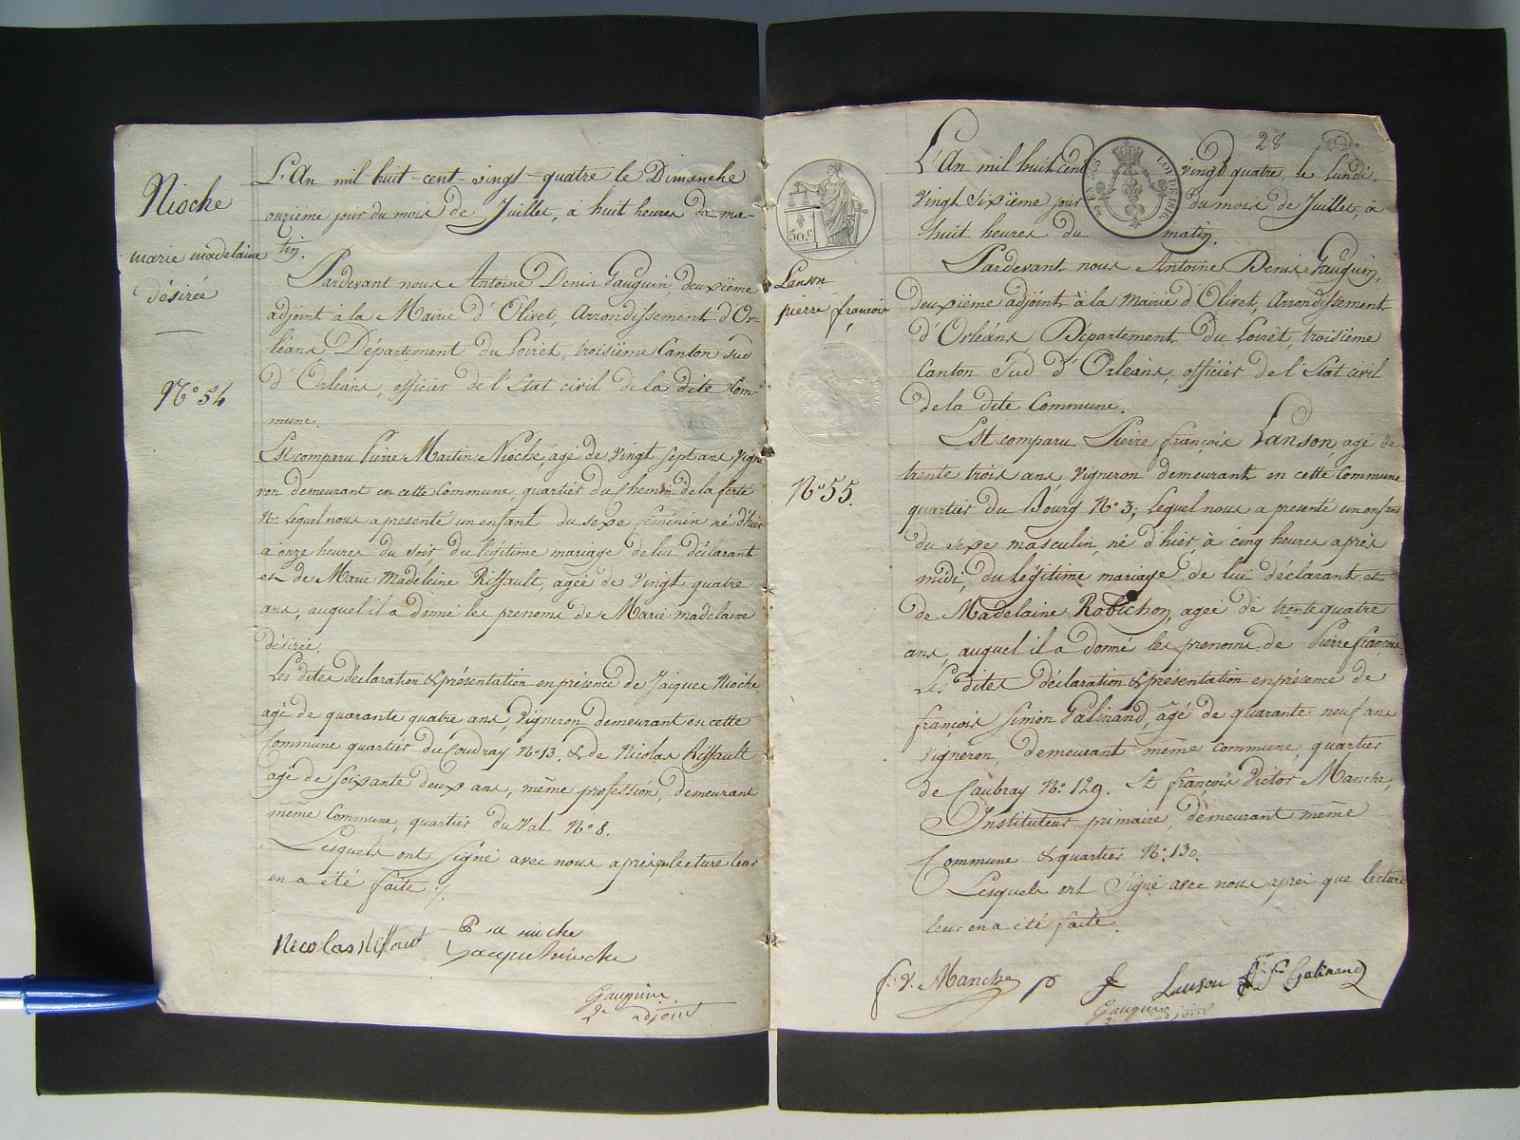 Nioche
marie madelaine
désirée
N.o 54
L'An mil huit-cent-vingt-quatre le Dimanche
onzième jour du mois de Juillet, à huit heures du ma-
tin.
Pardevant nous Antoine Denis Gauguin, deuxième
adjoint à la Mairie d'Olivet, Arrondissement d'Or-
léans Département du Loiret, troisième Canton sud
d'Orléans, officier de l'Etat civil de la dite Com-
mune.
Est comparu Pierre Martin Nioche, agé de vingt sept ans vigne-
ron demeurant en cette Commune, quartier du chemin de la ferté
N.o lequel nous a presenté un enfant du sexe féminen né d'hier
a onze heures du soir du légitime mariage de lui déclarant
et de Marie Madeleine Riffault, agée de vingt quatre
ans, auquel il a donné les prenoms de Marie madelaine
désirée.
Les dites déclaration & présentation en présence de Jaiques Nioche
agé de quarante quatre ans, vigneron demeurant en cette
Commune quartier du Coudray N.o 13. & de Nicolas Riffault
agé de soixante deux ans, même profession, demeurant
même Commune, quartier du Val N.o 8.
Lesquels ont signé avec nous après lecture leur
en a été faite ./.
Nicolas Riffaut
Jacque niuche
Gauguin
2e adjoint
28
50c
LOI DU TIMBRE
Lanson
pierre françois
N.o 55.
L'An mil huit cent vingt quatre le Lundi
vingt sixième jour du mois de Juillet, à
huit heures du matin.
Pardevant nous Antoine Denis Gauguin,
deuxième adjoint à la mairie d'Olivet, Arrondissement
d'Orléans Département du Loiret, troisième
Canton Sud d'Orléans, officier de l'Etat civil
de la dite Commune.
Est comparu Pierre françois Lanson, agé de
trente trois ans, vigneron demeurant en cette Commune
quartier du Bourg N.o 3; lequel nous a presenté un enfant
du sexe masculin, né d'hier, à cinq heures après
midi, du légitime mariage de lui déclarant et
de Madelaine Robichon, agée de trente quatre
ans, auquel il a donné les prenoms de Pierre françois.
Les dites déclaration & présentation en présence de
françois Simon Galinand, âgé de quarante neuf ans
vigneron, demeurant même commune, quartier
de Caubray N.o 129. Et françois Victor Manche,
Instituteur primaire, demeurant même
Commune & quartier N.o 130.
Lesquels ont Signé avec nous après que lecture
leur en a été faite.
f. v. Manche p f Lanson fr. Sn Galinand
Gauguin
2e adjoint